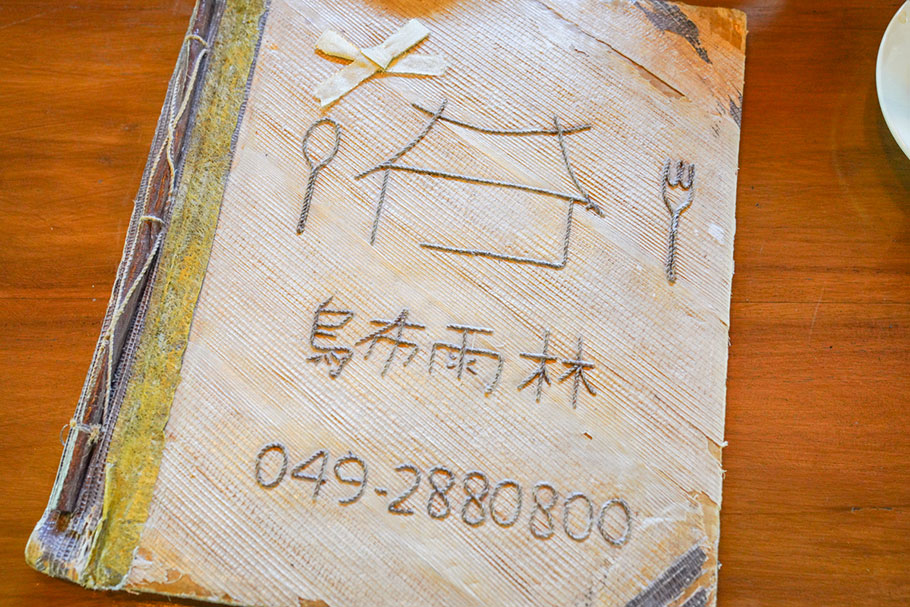 烏布雨林
049-2880800